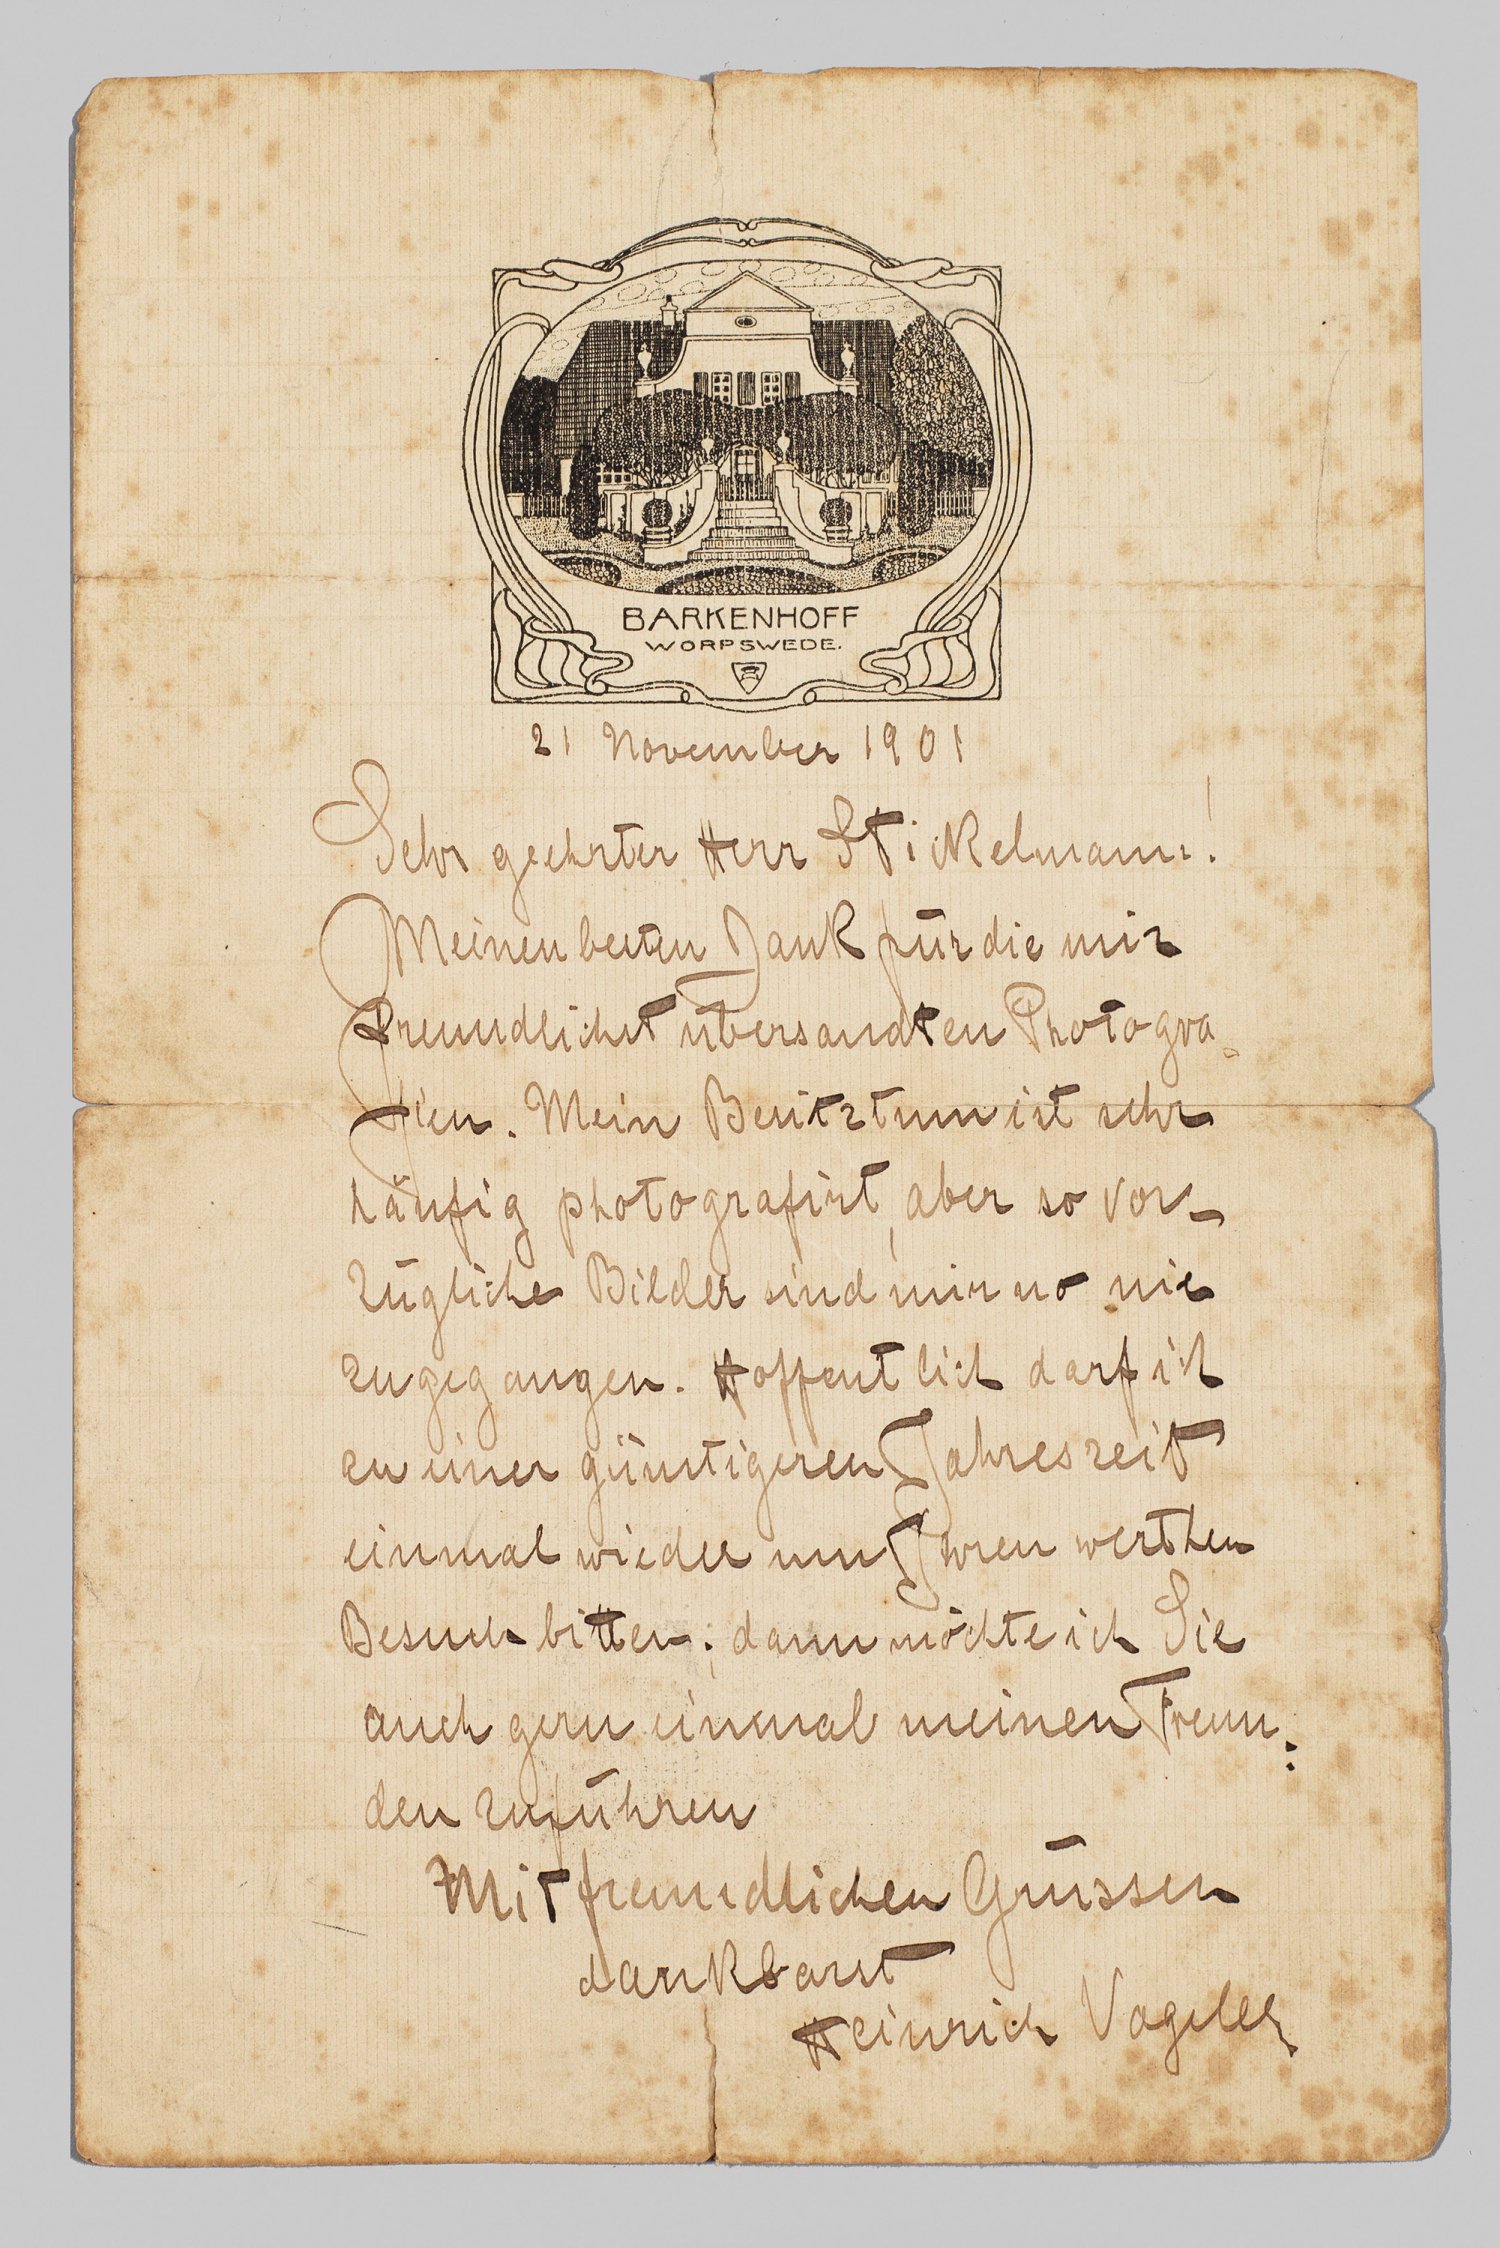 BARKENHOFF
WORPSWEDE.
21 November 1901
Sehr geehrter Herr Stickelmann!
Meinen besten Dank für die mir
freundlichst übersandten Photogra-
fien. Mein Besitztum ist sehr
häufig photografirt, aber so vor-
zügliche Bilder sind mir no nie
zugegangen. Hoffentlich darf ich
zu einer günstigeren Jahreszeit
einmal wieder um Ihren werthen
Besuch bitten; dann möchte ich Sie
auch gern einmal meinen Freun:
den zuführen
Mit freundlichen Grüssen
dankbarst
Heinrich Vogeler